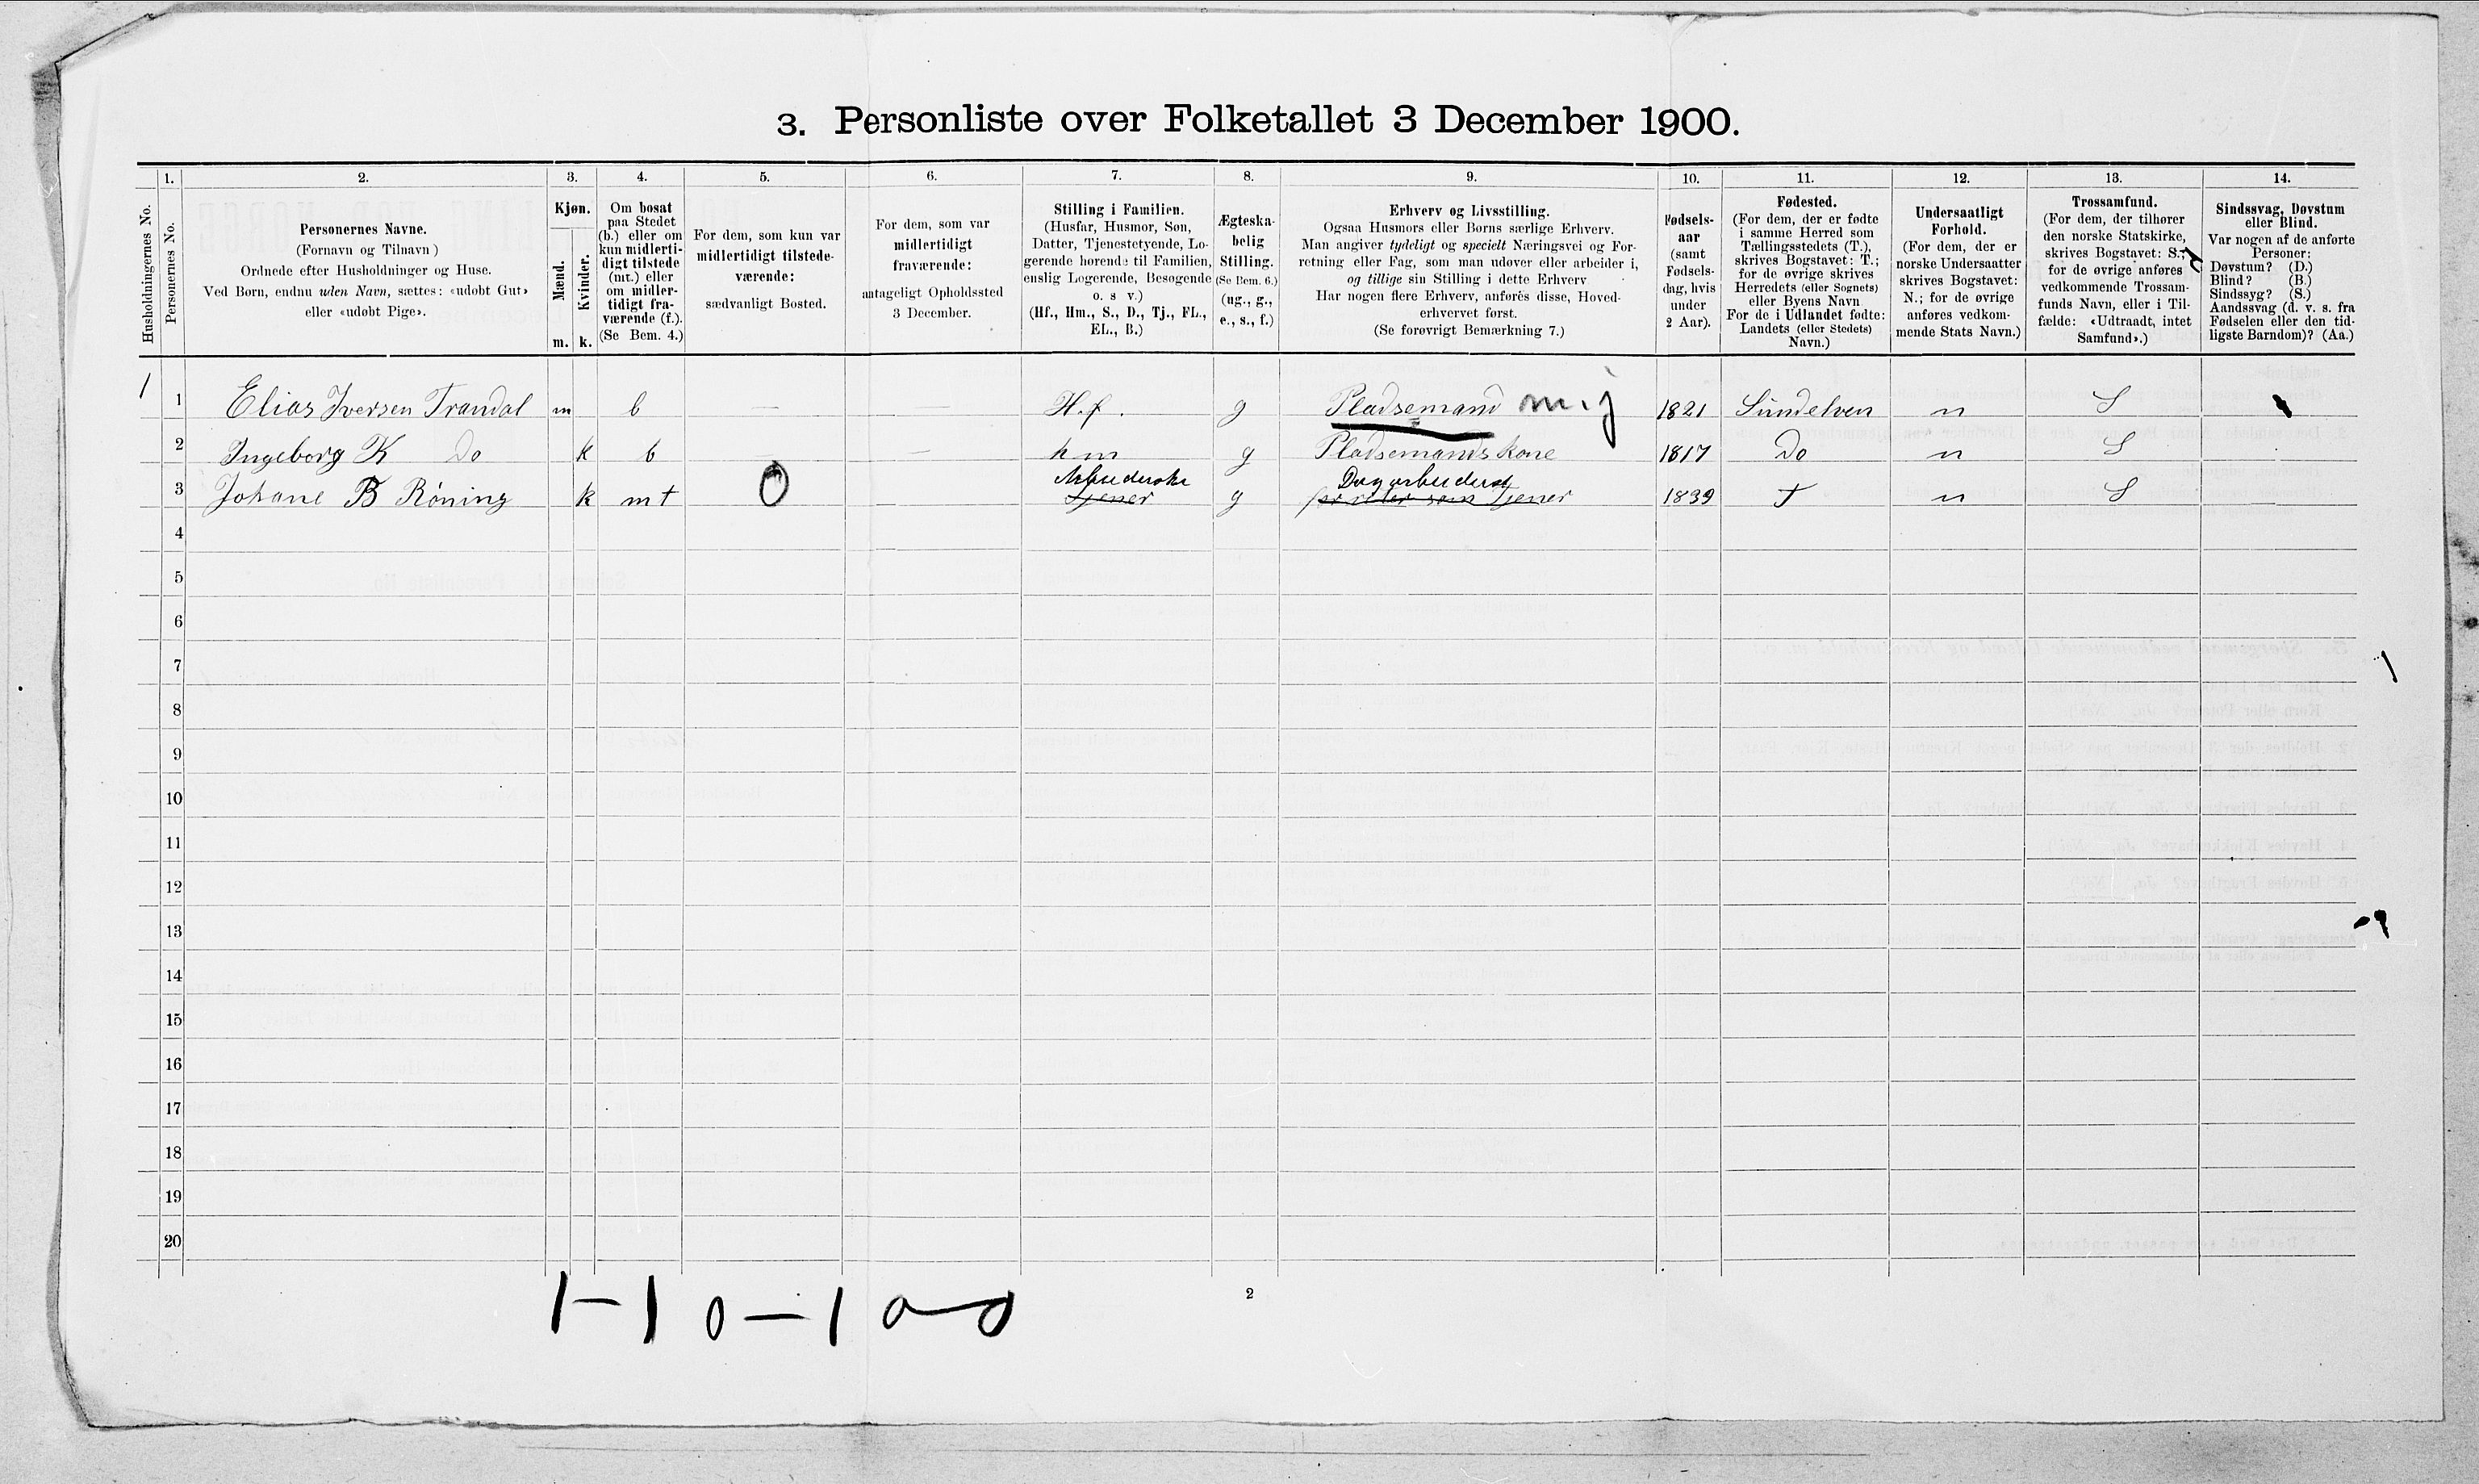 3. Personliste over Folketallet 3 December 1900.
1. 2. 3. 4. 5. 6. 7. 8. 9. 10. 11. 12. 13. 14.
Husholdningernes No.
Personernes No.
Personernes Navne.
(Fornavn og Tilnavn)
Ordnede efter Husholdninger og Huse.
Ved Børn, endnu uden Navn, sættes: «udøbt Gut»
eller «udøbt Pige».
Kjøn.
Mænd.
Kvinder.
m. k.
Om bosat
paa Stedet
(b.) eller om
kun midlerti-
digt tilstede
(mt.) eller
om midler-
tidigt fra-
værende (f.).
(Se Bem. 4.)
For dem, som kun var
midlertidigt tilstede-
værende:
sædvanligt Bosted.
For dem, som var
midlertidigt
fraværende:
antageligt Opholdssted
3 December.
Stilling i Familien.
(Husfar, Husmor, Søn,
Datter, Tjenestetyende, Lo-
gerende hørende til Familien,
enslig Logerende, Besøgende
o. s v.)
(Hf., Hm., S., D., Tj., FL.,
EL., B.)
Ægteska-
belig
Stilling.
(Se Bem. 6.)
(ug., g.,
e., s., f.)
Erhverv og Livsstilling.
Ogsaa Husmors eller Børns særlige Erhverv.
Man angiver tydeligt og specielt Næringsvei og For-
retning eller Fag, som man udøver eller arbeider i,
og tillige sin Stilling i dette Erhverv
Har nogen flere Erhverv, anføres disse, Hoved-
erhvervet først.
(Se forøvrigt Bemærkning 7.)
Fødsels-
aar
(samt
Fødsels-
dag, hvis
under
2 Aar).
Fødested.
(For dem, der er fødte
i samme Herred som
Tællingsstedets (T.),
skrives Bogstavet: T.;
for de øvrige skrives
Herredets (eller Sognets)
eller Byens Navn
For de i Udlandet fødte:
Landets (eller Stedets)
Navn.)
Undersaatligt
Forhold.
(For dem, der er
norske Undersaatter
skrives Bogstavet:
N.; for de øvrige
anføres vedkom-
mende Stats Navn.)
Trossamfund.
(For dem, der tilhører
den norske Statskirke,
skrives Bogstavet: S.;
for de øvrige anføres
vedkommende Trossam-
funds Navn, eller i Til-
fælde: «Udtraadt, intet
Samfund».)
Sindssvag, Døvstum
eller Blind.
Var nogen af de anførte
Personer:
Døvstum? (D.)
Blind? (B.)
Sindssyg? (S.)
Aandssvag (d. v. s. fra
Fødselen eller den tid-
ligste Barndom)? (Aa.)
1 1 Elias Iversen Trandal m b — — H.f. g Pladsemand m.j 1821 Sundelven n S
2 Ingeborg K Do k b — — h m g Pladsemands kone 1817 Do n S
Arbeiderske Dagarbeiderst
3 Johane B Røning k mt 0 Tjener g som Tjener 1839 T n S
4
5
6
7
8
9
10
11
12
13
14
15
16
17
18
19
20
1—1 0—1 0—0
2